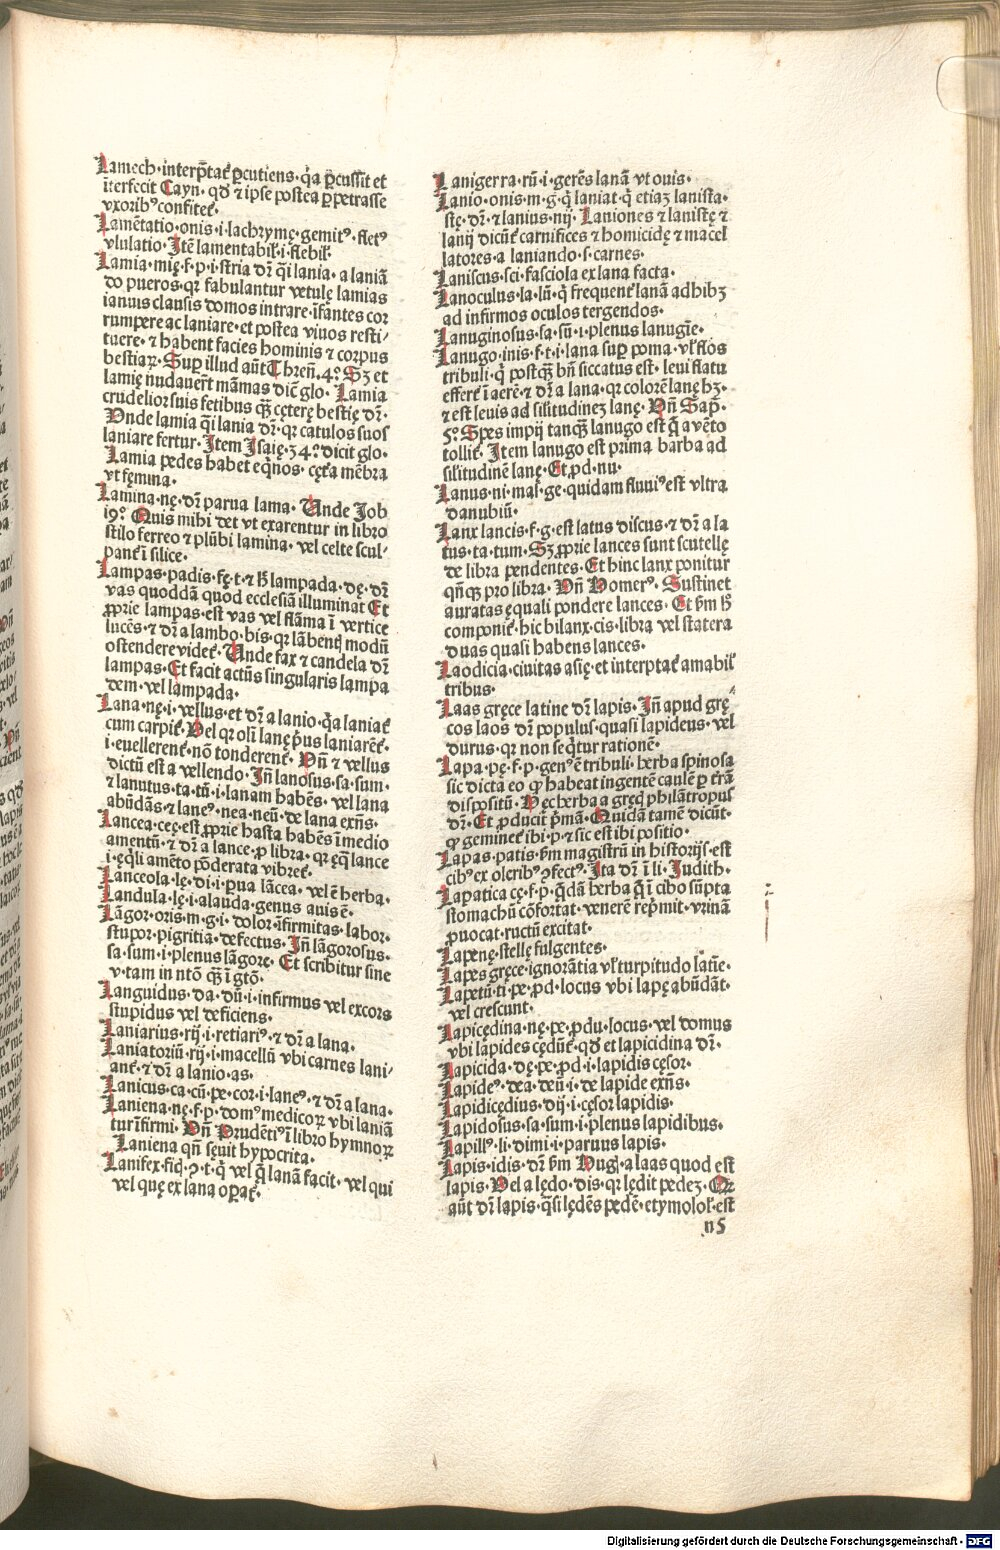 Lamech·interp̄tat᷑ ꝑcutiens·q̇a ꝑcussit et
īterfecit Cayn· qđ ⁊ ipse postea ꝑpetrasse
vxoribꝰ confitet᷑·
Lamētatio·onis·i·lachrymę·gemitꝰ·fletꝰ
vlulatio· Itē lamentabil᷑·i·flebil᷑·
Lamia·mię·f·p·i·stria dr̄ q̄i lania· a laniā
do pueros·qr fabulantur vetulę lamias
ianuis clausis domos intrare·īfantes cor
rumpere ac laniare·et postea viuos resti/
tuere·⁊ habent facies hominis ⁊ corpus
bestiaꝝ·Suꝑ illud aūt Thren̄·4°·Sꝫ et
lamię nudauer̄t māmas dic̄ glo· Lamia
crudelior suis fetibus qꝫ̄ cęterę bestię dr̄·
Vnde lamia q̄i lania dr̄·qr catulos suos
laniare fertur·Item Isaię·34°·dicit glo·
Lamia pedes habet eq̇nos· cęt᷑a mēbra
vt fęmina·
Lamina·nę·dr̄ parua lama· Unde Job
19°·Quis mihi det vt exarentur in libro
stilo ferreo ⁊ plūbi lamina·vel celte scul-
pant᷑ ī silice·
Lampas·padis·fę·t·⁊ ħ lampada·dę·dr̄
vas quoddā quod ecclesiā illuminat Et
ꝓprie lampas·est vas vel flāma ī vertice
lucēs·⁊ dr̄ a lambo·bis·qr lābent̄ modū
ostendere videt᷑·Unde fax ⁊ candela dr̄
lampas·Et facit actūs singularis lampa
dem·vel lampada·
Lana·nę·i·vellus·et dr̄ a lanio·q̇a laniat᷑
cum carpit᷑·Vel qr olī lanę p̄us laniarēt᷑·
i·euellerent᷑·nō tonderent᷑·Vn̄ ⁊ vellus
dictū est a vellendo·Jn̄ lanosus·sa·sum·
⁊ lanutus·ta·tū·i·lanam habēs·vel lana
abūdās·⁊ laneꝰ·nea·neū·de lana exn̄s·
Lancea·ceę·est ꝓprie hasta habēs ī medio
amentū·⁊ dr̄ a lance·ꝓ libra·qr ęq̄ lance
i·ęq̄li amēto pōderata vibret᷑·
Lanceola·lę·di·i·ꝑua lācea·vel ē herba·
Landula·lę·i·alauda·genus auis ē·
Lāgor·oris·m·g·i·dolor·īfirmitas·labor·
stupor·pigritia·defectus·Jn̄ lāgorosus·
sa·sum·i·plenus lāgorę· Et scribitur sine
v·tam in ntō qꝫ̄ ī gtō·
Languidus·da·dū·i·infirmus vel excors
stupidus vel deficiens·
Laniarius·rij·i·retiariꝰ·⁊ dr̄ a lana·
Laniatoriū·rij·i·macellū vbi carnes lani/
ant᷑·⁊ dr̄ a lanio·as·
Lanicus·ca·cū·pe·cor·i·laneꝰ·⁊ dr̄ a lana·
Laniena·nę·f·p·domꝰ medicoꝝ vbi laniā
tur īfirmi·Vn̄ Prudētiꝰ ī libro hymnoꝝ
Laniena qn̄ sęuit hypocrita·
Lanifex·ficꝭ·ꝯ·t·q̇ vel q̄ lanā facit·vel qui
vel quę ex lana oꝑat᷑·
Lanigerra·rū·i·gerēs lanā vt ouis·
Lanio·onis·m·g·q̇ laniat·q̇ etiaꝫ lanista·
stę·dr̄·⁊ lanius·nij· Laniones ⁊ lanistę ⁊
lanij dicūt᷑ carnifices ⁊ homicidę ⁊ macel
latores·a laniando·s·carnes·
Laniscus·sci·fasciola ex lana facta·
Lanoculus·la·lū·q̇ frequent᷑ lanā adhibꝫ
ad infirmos oculos tergendos·
Lanuginosus·sa·sū·i·plenus lanugīe·
Lanugo·inis·f·t·i·lana suꝑ poma·vl᷑ flos
tribuli·q̇ postqꝫ̄ bn̄ siccatus est·leui flatu
effert᷑ ī aerē·⁊ dr̄ a lana·qr colorē lanę hꝫ·
⁊ est leuis ad silitudineꝫ lanę· Vn̄ Sap̄·
5°·Spes impij tanqꝫ̄ lanugo est q̄ a vēto
tollit᷑·Item lanugo est prima barba ad
silitudinē lanę·Et ꝓd·nu·
Lanus·ni·mas᷑·ge·quidam fluuiꝰ est vltra
danubiū·
Lanx lancis·f·g·est latus discus·⁊ dr̄ a la
tus·ta·tum·Sꝫ ꝓprie lances sunt scutellę
de libra pendentes·Et hinc lanx ponitur
qn̄qꝫ pro libra·Vn̄ Homerꝰ·Sustinet
auratas ęquali pondere lances·Et ẜm ħ
componit᷑·hic bilanx·cis·libra vel statera
duas quasi habens lances·
Laodicia·ciuitas asię·et interptat᷑ amabil᷑
tribus·
Laas gręce latine dr̄ lapis·Jn̄ apud grę
cos laos dr̄ populus·quasi lapideus·vel
durus·qr non seq̇tur rationē·
Lapa·pę·f·p·genꝰ ē tribuli·herba spinosa
sic dicta eo ꝙ habeat ingentē caulē ꝑ t᷑rā
dispositū·Hec herba a gręcꝭ philātropus
dr̄·Et ꝓducit p̄mā·Quidā tamē dicūt·
ꝙ geminet᷑ ibi·p·⁊ sic est ibi positio·
Lapas·patis·ẜm magistrū in historijs·est
cibꝰ ex oleribꝰ ꝯfectꝰ·Ita dr̄ ī li·Judith·
Lapatica cę·f·p·q̄dā herba q̄ ī cibo sūpta
stomachū cōfortat·venerē rep̄mit·vrinā
ꝓuocat·ructū excitat·
Lapenę·stellę fulgentes·
Lapes gręce·ignorātia vl᷑ turpitudo latīe·
Lapetū·ti·pe·ꝓd·locus vbi lapę abūdāt·
vel crescunt·
Lapicędina·nę·pe·ꝓdu·locus·vel domus
vbi lapides cędūt᷑·qđ et lapicidina dr̄·
Lapicida·dę·pe·ꝓd·i·lapidis cęsor·
Lapideꝰ·dea·deū·i·de lapide exn̄s·
Lapidicędius·dij·i·cęsor lapidis·
Lapidosus·sa·sum·i·plenus lapidibus·
Lapillꝰ·li·dimi·i·paruus lapis·
Lapis·idis·dr̄ ẜm Hug·a laas quod est
lapis·Vel a lędo·dis·qr lędit pedeꝫ·Qr
aūt dr̄ lapis·q̄si lędēs pedē·etymolo᷑·est
n5
Digitalisierung gefördert durch die Deutsche Forschungsgemeinschaft - DFG